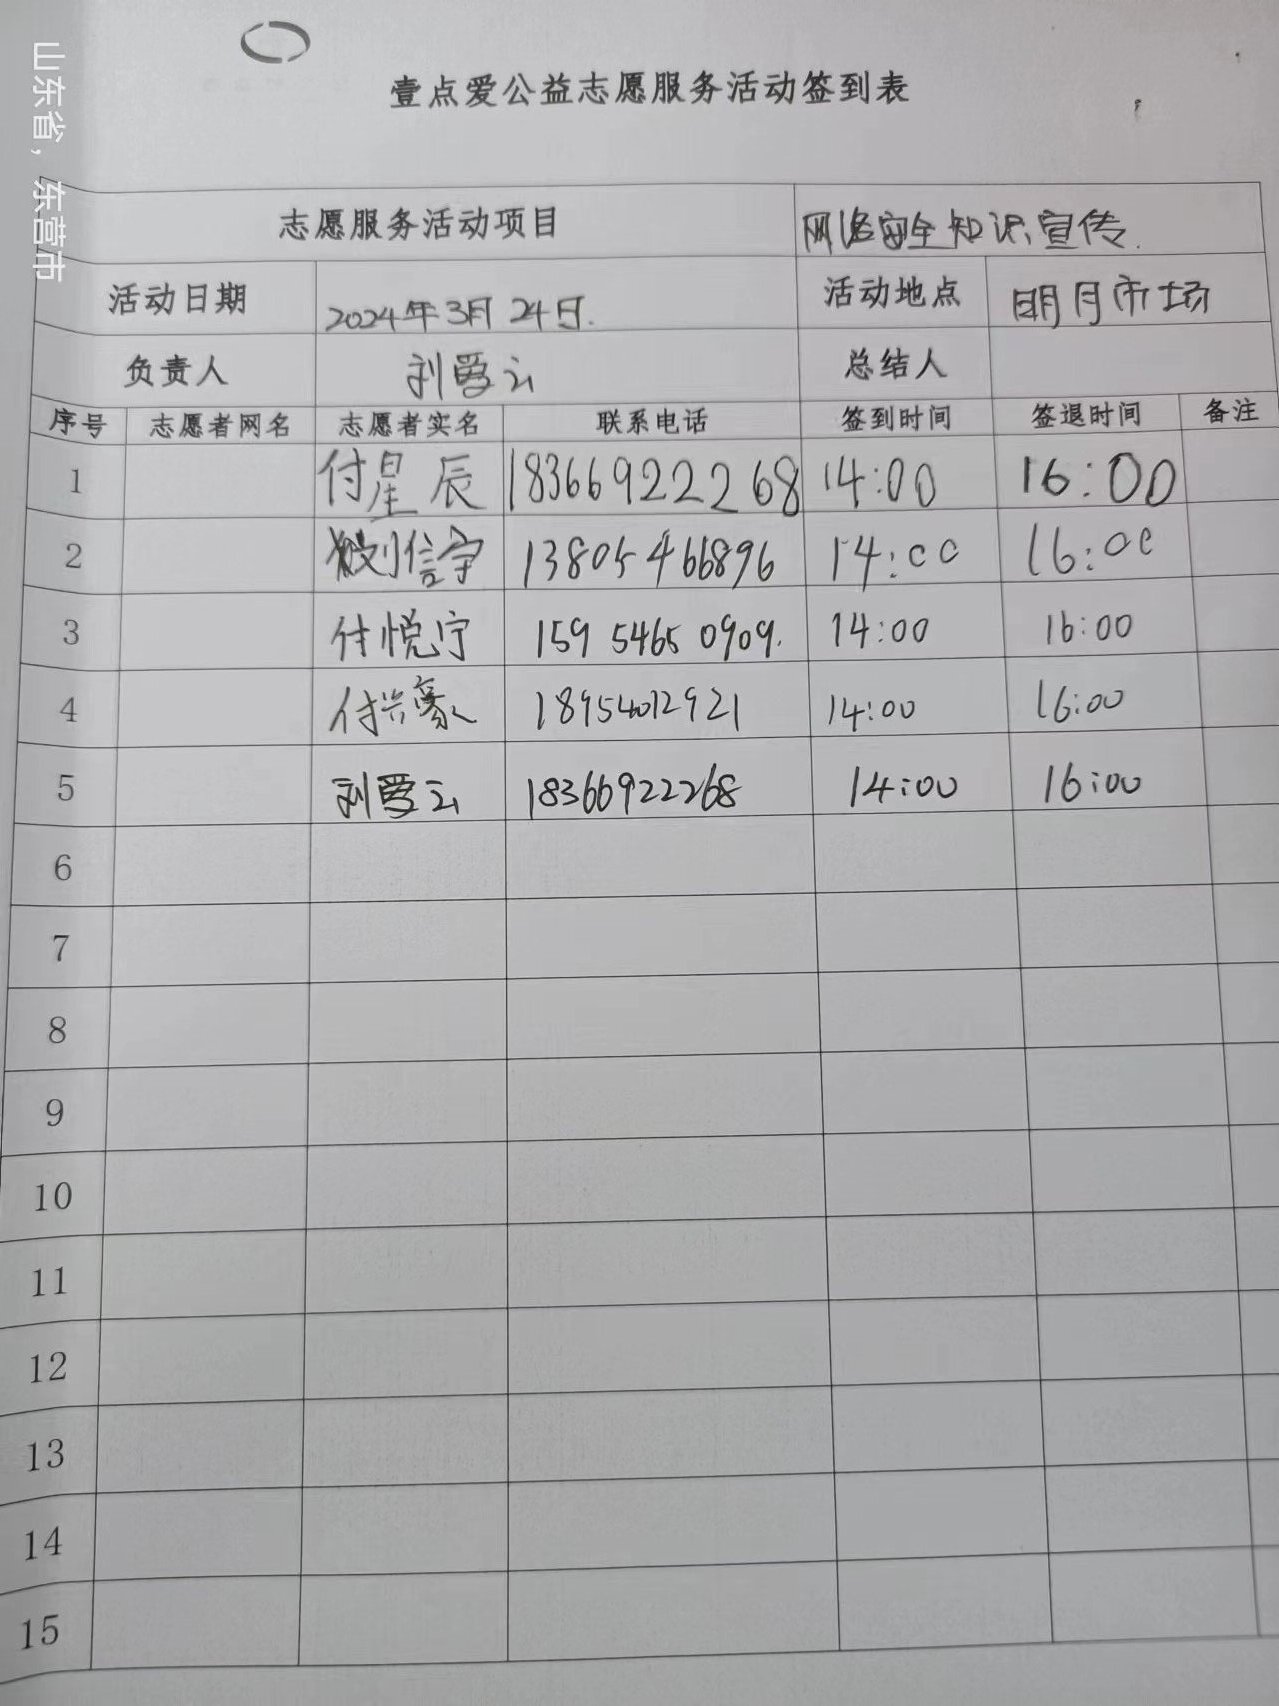 山东省，东营市
壹点爱公益志愿服务活动签到表
志愿服务活动项目 网络安全知识宣传.
活动日期 2024年3月24日. 活动地点 明月市场
负责人 刘爱云 总结人
序号 志愿者网名 志愿者实名 联系电话 签到时间 签退时间 备注
1 付星辰 18366922268 14:00 16:00
2 刘信宇 13805466896 14:00 16:00
3 付悦宁 159 5465 0909. 14:00 16:00
4 付兴豪 18954012921 14:00 16:00
5 刘爱云 18366922268 14:00 16:00
6
7
8
9
10
11
12
13
14
15